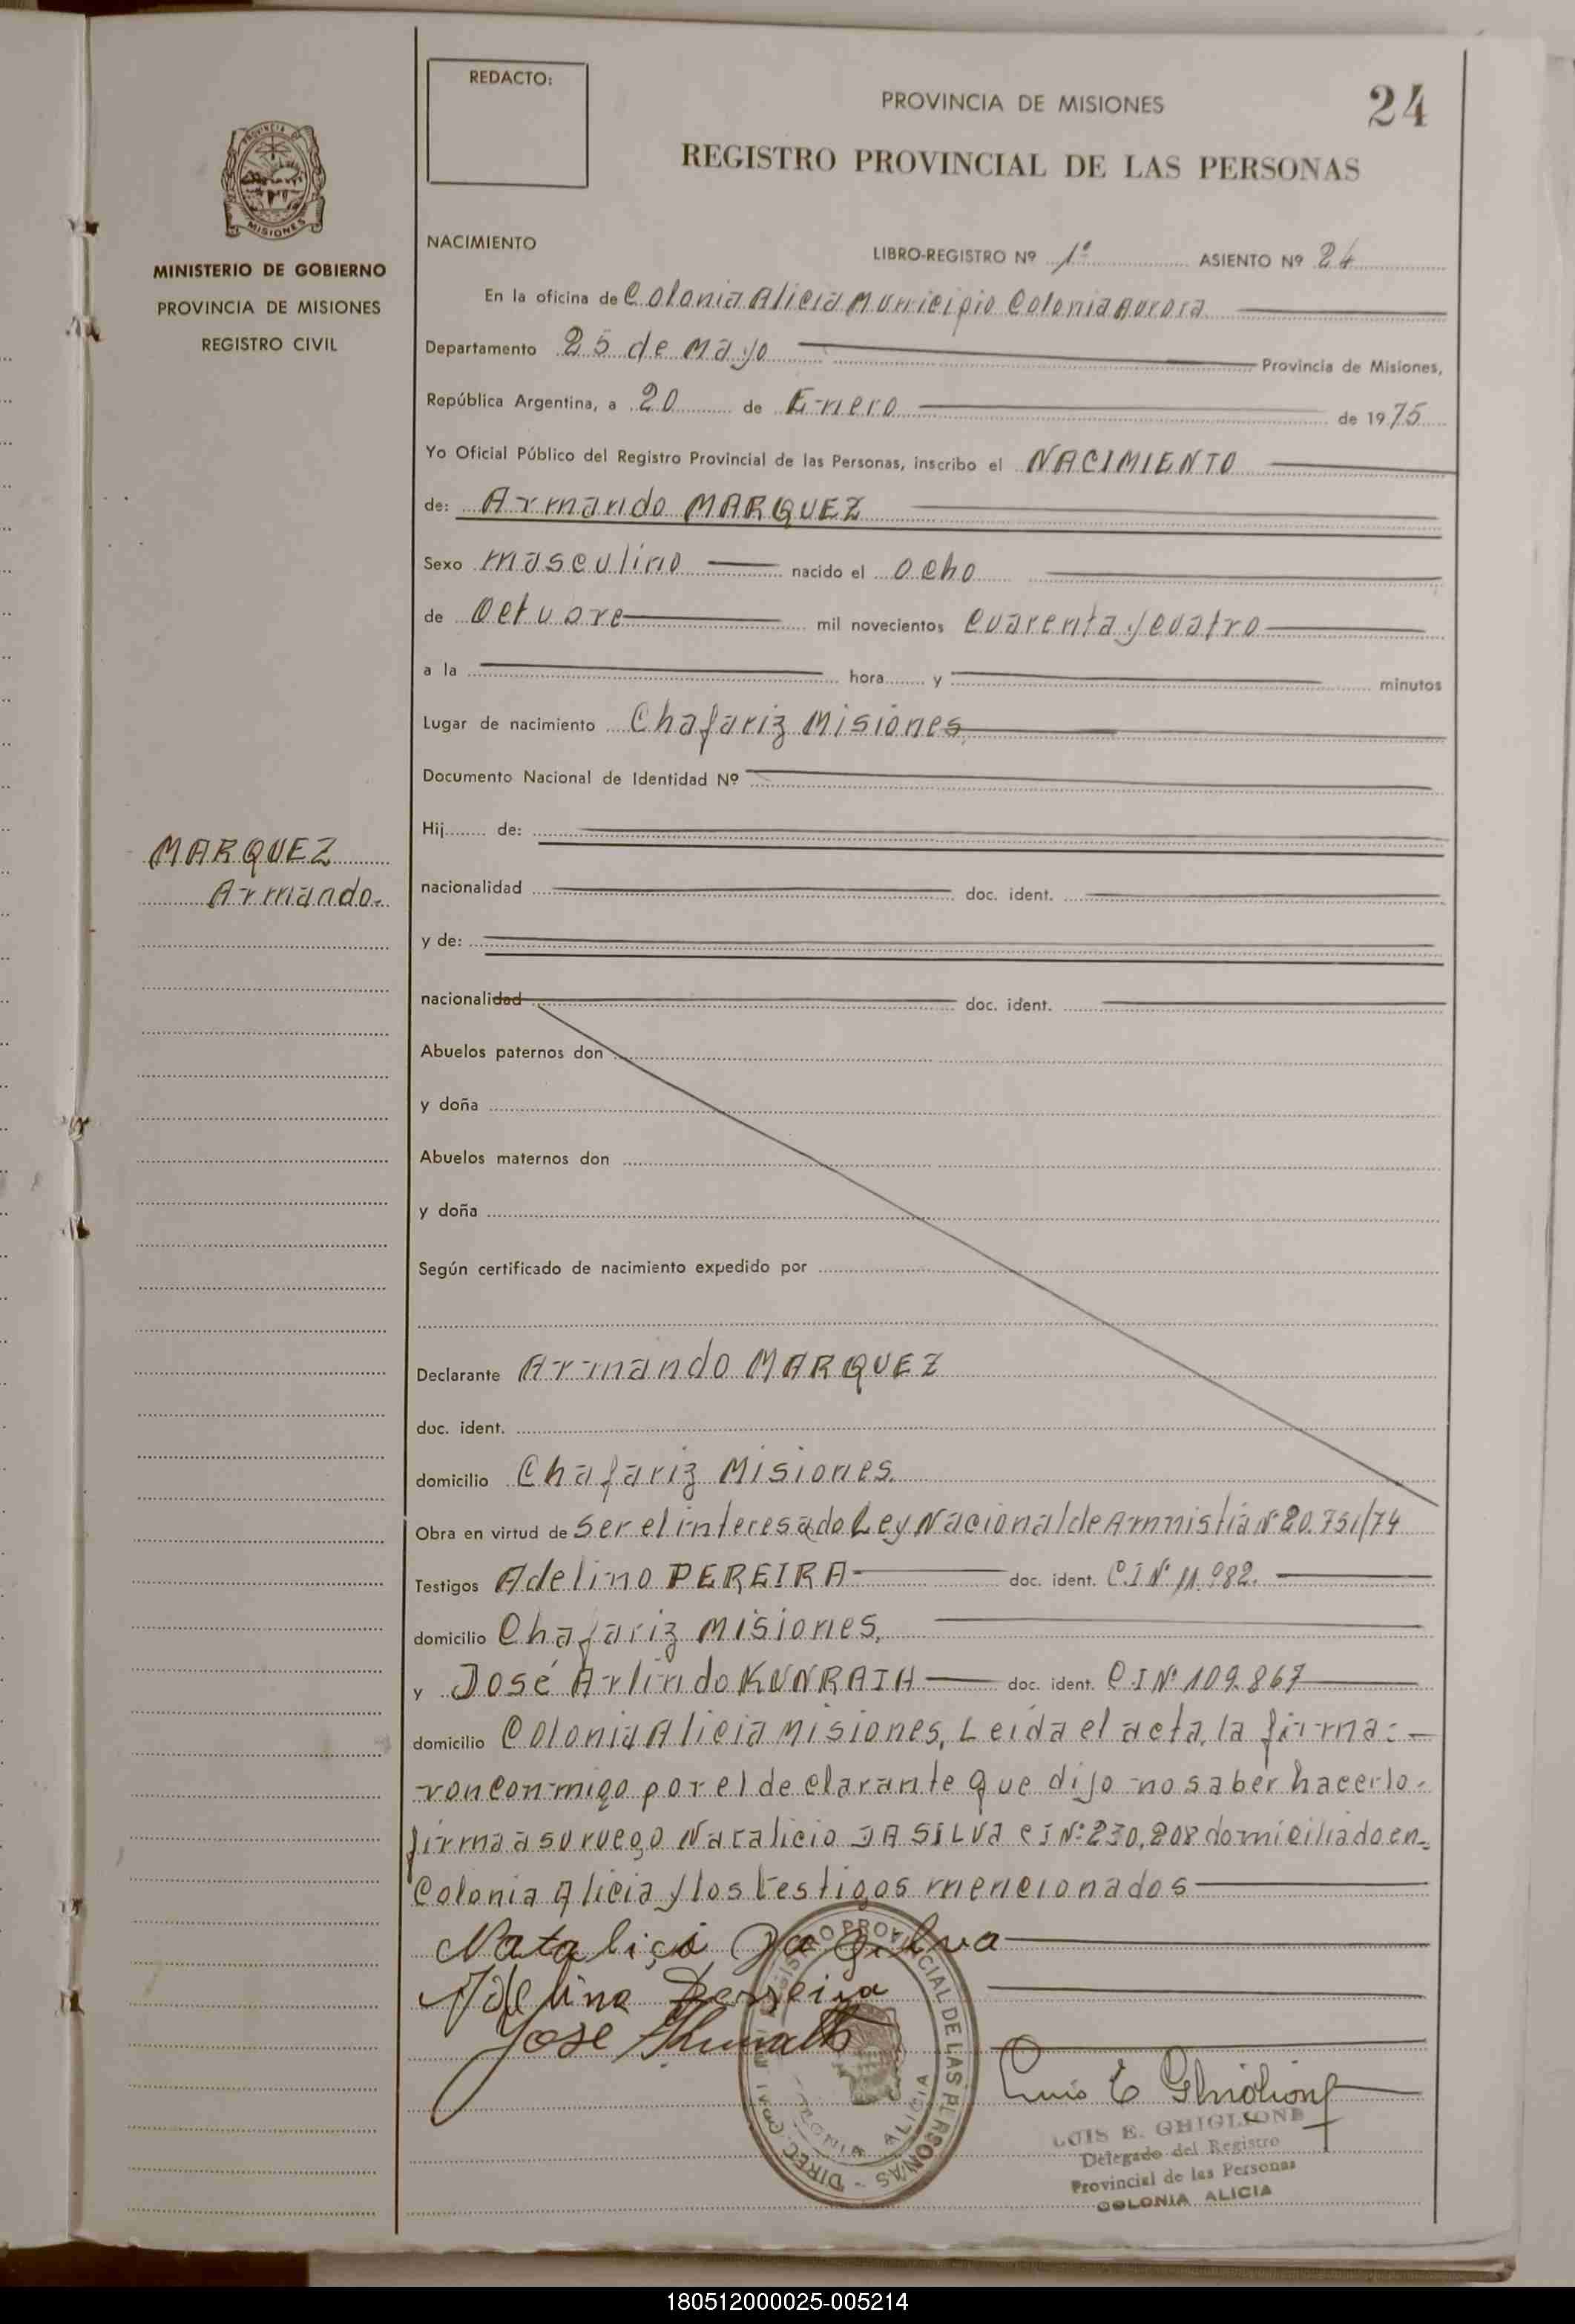 REDACTO:
PROVINCIA DE MISIONES
24
REGISTRO PROVINCIAL DE LAS PERSONAS
PROVINCIA DE
MISIONES
MINISTERIO DE GOBIERNO
PROVINCIA DE MISIONES
REGISTRO CIVIL
NACIMIENTO
LIBRO-REGISTRO Nº 1º ASIENTO Nº 24
En la oficina de Colonia Alicia Municipio Colonia Aurora
Departamento 25 de Mayo Provincia de Misiones,
República Argentina, a 20 de Enero de 1975
Yo Oficial Público del Registro Provincial de las Personas, inscribo el NACIMIENTO
de: Armando MARQUEZ
Sexo masculino nacido el ocho
de Octubre mil novecientos cuarenta y cuatro
a la hora y minutos
Lugar de nacimiento Chafariz Misiones
Documento Nacional de Identidad Nº
Hij de:
MARQUEZ
Armando.
nacionalidad doc. ident.
y de:
nacionalidad doc. ident.
Abuelos paternos don
y doña
Abuelos maternos don
y doña
Según certificado de nacimiento expedido por
Declarante Armando MARQUEZ
doc. ident.
domicilio Chafariz Misiones.
Obra en virtud de ser el interesado Ley Nacional de Amnistia Nº 20.751/74
Testigos Adelino PEREIRA doc. ident. C.I Nº 11.982.
domicilio Chafariz Misiones,
y José Arlindo KUNRATH doc. ident. C I Nº 109.867
domicilio Colonia Alicia Misiones, Leída el acta, la firma:
ron conmigo por el declarante que dijo no saber hacerlo.
firma a su ruego Natalicio DA SILVA C I Nº 230.208 domiciliado en
Colonia Alicia y los testigos mencionados
Nataliçio Da Silva
Adelino Pereira
Jose Kunrath
Luis E Ghiglione
DIREC. GRAL. DEL REGISTRO PROVINCIAL DE LAS PERSONAS -
COLONIA ALICIA
LUIS E. GHIGLIONE
Delegado del Registro
Provincial de las Personas
COLONIA ALICIA
180512000025-005214